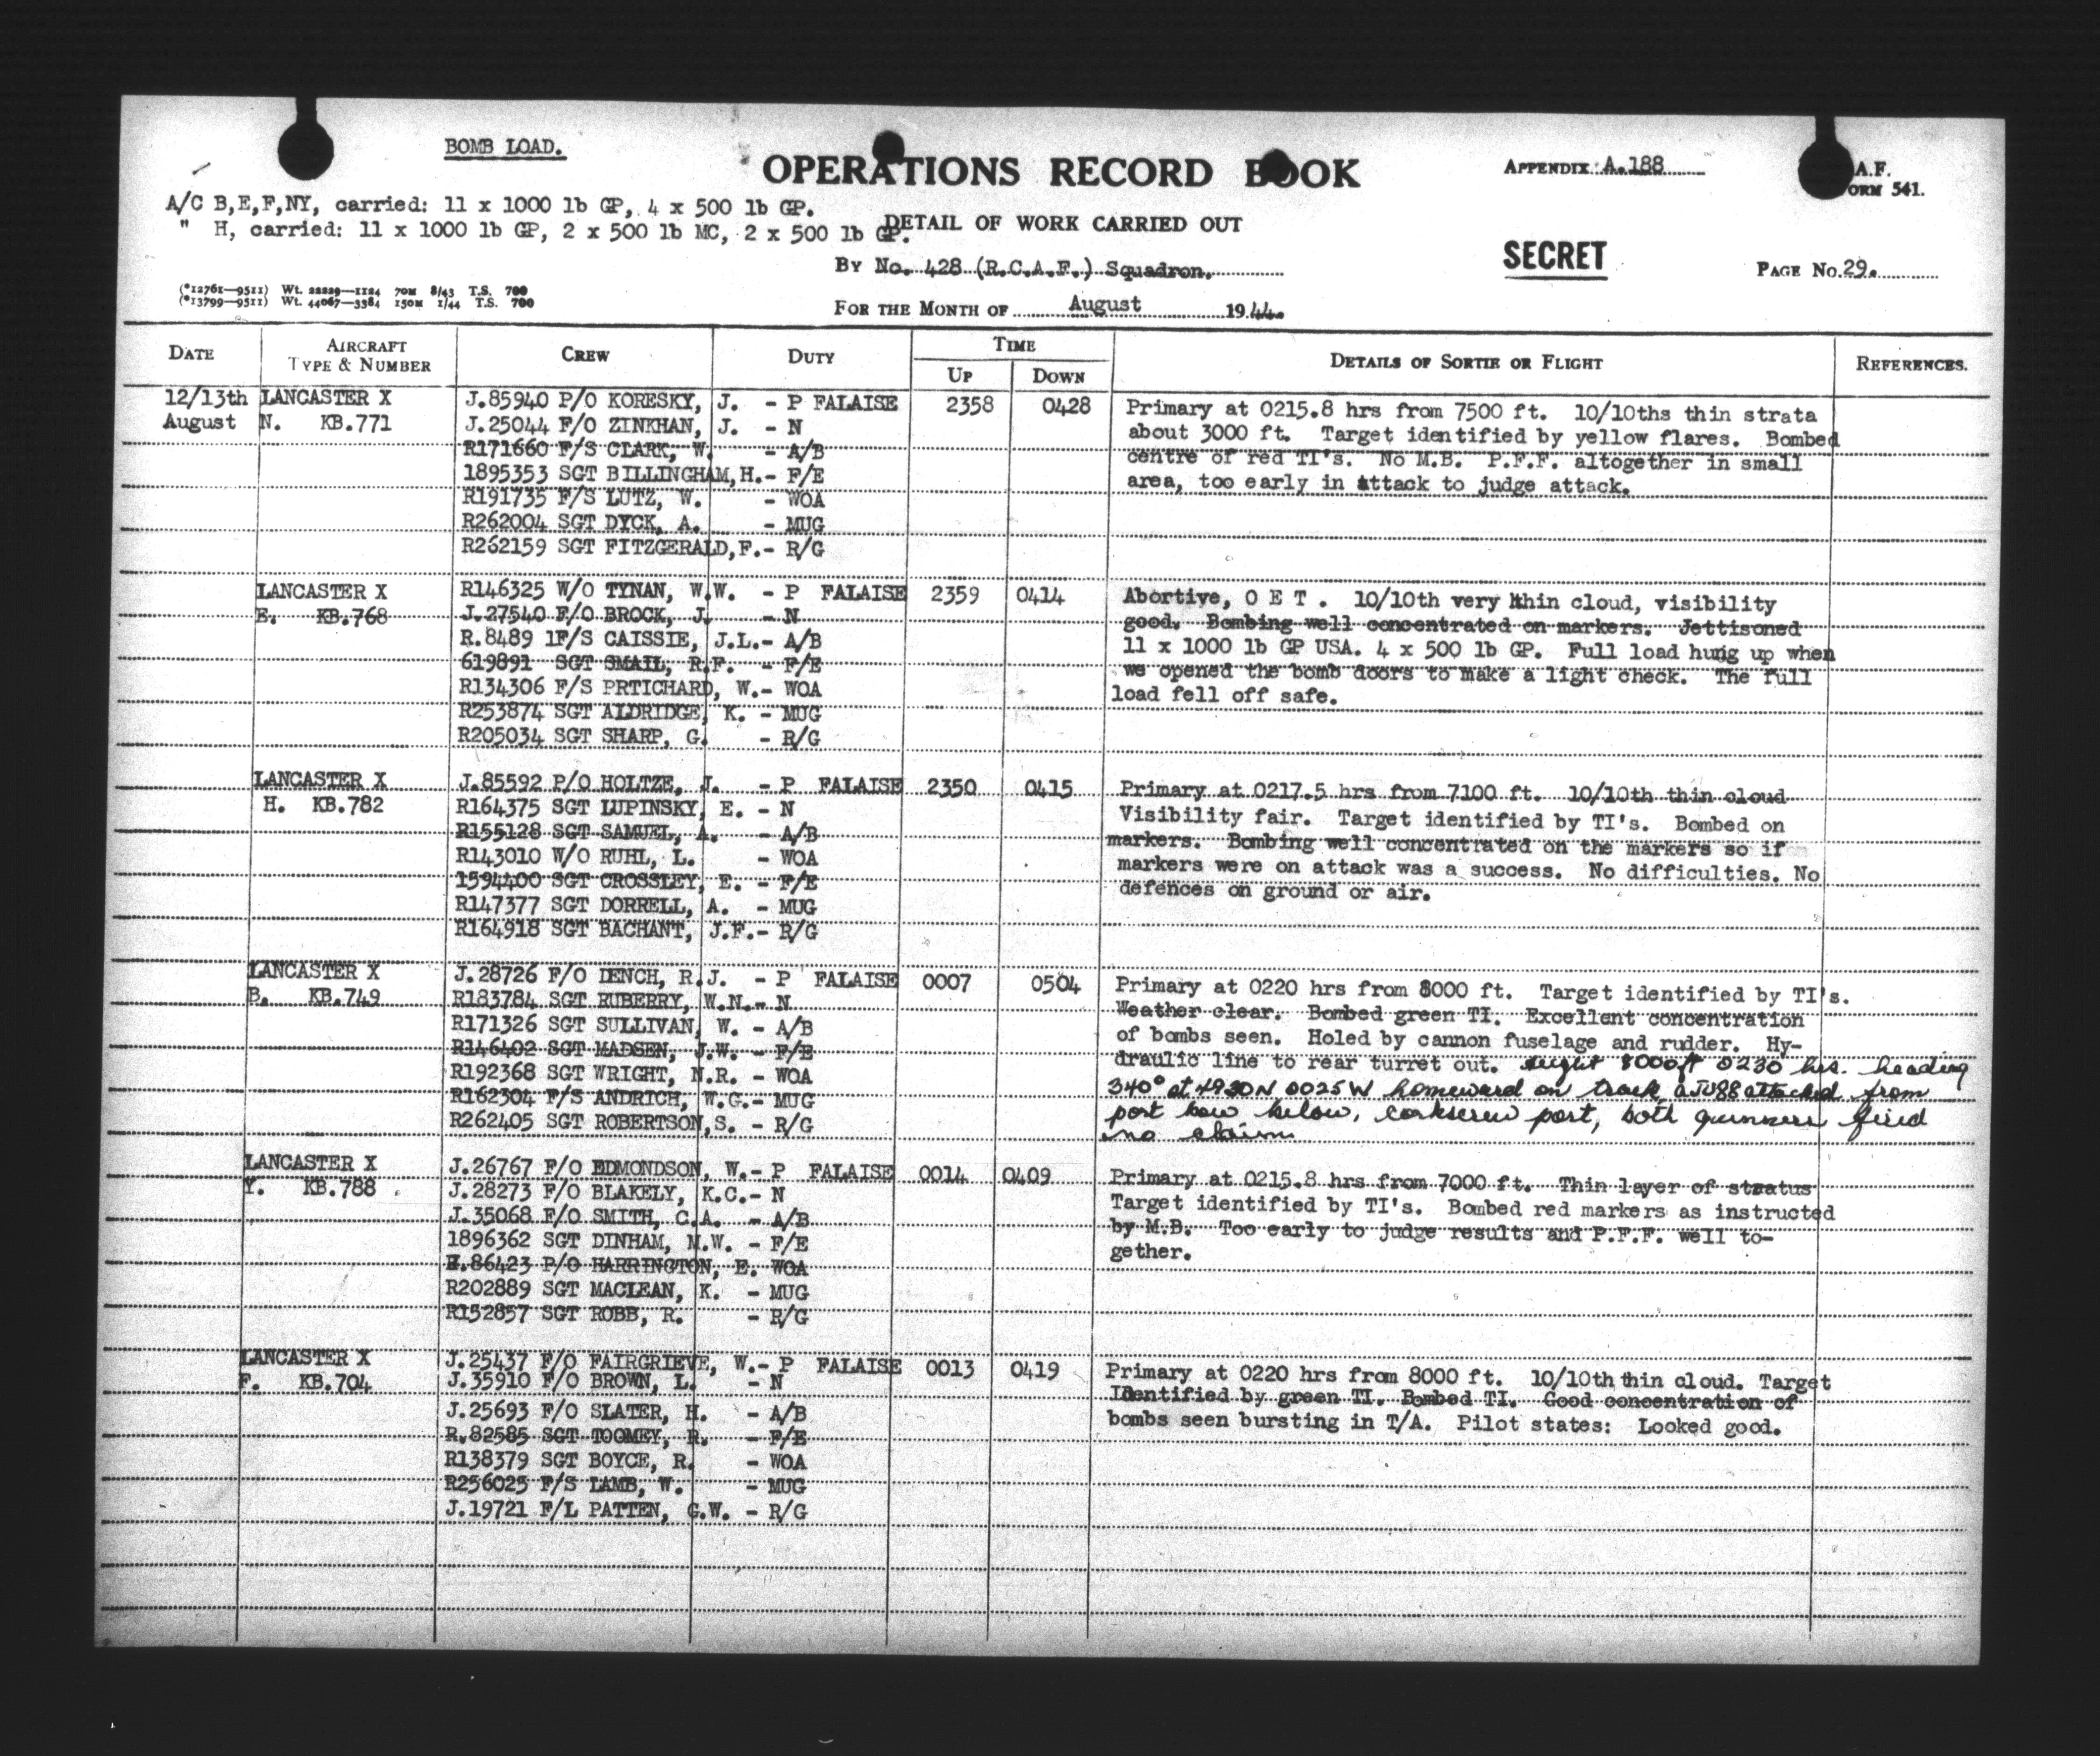 BOMB LOAD.
OPERATIONS RECORD BOOK
APPENDIX A.188
A.F.
ORM 541.
A/C B,E,F,NY, carried: 11 x 1000 lb GP, 4 x 500 lb GP.
" H, carried: 11 x 1000 lb GP, 2 x 500 lb MC, 2 x 500 lb GP.
DETAIL OF WORK CARRIED OUT
BY No. 428 (R.C.A.F.) Squadron.
SECRET
PAGE No. 29.
(*12761—9511) Wt. 22229—1124 70M 8/43 T.S. 700
(*13799—9511) Wt. 44067—3384 150M 1/44 T.S. 700
FOR THE MONTH OF August 1944.
DATE AIRCRAFT TYPE & NUMBER CREW DUTY TIME UP DOWN DETAILS OF SORTIE OR FLIGHT REFERENCES.
12/13th LANCASTER X J.85940 P/O KORESKY, J. - P FALAISE 2358 0428 Primary at 0215.8 hrs from 7500 ft. 10/10ths thin strata
August N. KB.771 J.25044 F/O ZINKHAN, J. - N about 3000 ft. Target identified by yellow flares. Bombed
R171660 F/S CLARK, W. - A/B centre of red TI's. No M.B. P.F.F. altogether in small
1895353 SGT BILLINGHAM,H.- F/E area, too early in attack to judge attack.
R191735 F/S LUTZ, W. - WOA
R262004 SGT DYCK, A. - MUG
R262159 SGT FITZGERALD,F.- R/G
LANCASTER X R146325 W/O TYNAN, W.W. - P FALAISE 2359 0414 Abortive, O E T . 10/10th very thin cloud, visibility
E. KB.768 J.27540 F/O BROCK, J. - N good. Bombing well concentrated on markers. Jettisoned
R.8489 1F/S CAISSIE, J.L.- A/B 11 x 1000 lb GP USA. 4 x 500 lb GP. Full load hung up when
619891 SGT SMAIL, R.F. - F/E we opened the bomb doors to make a light check. The full
R134306 F/S PRTICHARD, W.- WOA load fell off safe.
R253874 SGT ALDRIDGE, K. - MUG
R205034 SGT SHARP, G. - R/G
LANCASTER X J.85592 P/O HOLTZE, J. - P FALAISE 2350 0415 Primary at 0217.5 hrs from 7100 ft. 10/10th thin cloud
H. KB.782 R164375 SGT LUPINSKY, E. - N Visibility fair. Target identified by TI's. Bombed on
R155128 SGT SAMUEL, A. - A/B markers. Bombing well concentrated on the markers so if
R143010 W/O RUHL, L. - WOA markers were on attack was a success. No difficulties. No
1594400 SGT CROSSLEY, E. - F/E defences on ground or air.
R147377 SGT DORRELL, A. - MUG
R164918 SGT BACHANT, J.F.- R/G
LANCASTER X J.28726 F/O DENCH, R.J. - P FALAISE 0007 0504 Primary at 0220 hrs from 8000 ft. Target identified by TI's.
B. KB.749 R183784 SGT RUBERRY, W.N.- N Weather clear. Bombed green TI. Excellent concentration
R171326 SGT SULLIVAN, W. - A/B of bombs seen. Holed by cannon fuselage and rudder. Hy-
R146402 SGT MADSEN, J.W. - F/E draulic line to rear turret out. Height 8000 ft 0230 hrs. heading
R192368 SGT WRIGHT, N.R. - WOA 340° at 4930N 0025W homeward on track, a JU88 attacked from
R162304 F/S ANDRICH, W.G.- MUG port bow below, corkscrew port, both gunners fired
R262405 SGT ROBERTSON,S. - R/G no claim
LANCASTER X J.26767 F/O EDMONDSON, W.- P FALAISE 0014 0409 Primary at 0215.8 hrs from 7000 ft. Thin layer of stratus
Y. KB.788 J.28273 F/O BLAKELY, K.C.- N Target identified by TI's. Bombed red markers as instructed
J.35068 F/O SMITH, C.A. - A/B by M.B. Too early to judge results and P.F.F. well to-
1896362 SGT DINHAM, M.W. - F/E gether.
86423 P/O HARRINGTON, E. WOA
R202889 SGT MACLEAN, K. - MUG
R152857 SGT ROBB, R. - R/G
LANCASTER X J.25437 F/O FAIRGRIEVE, W.- P FALAISE 0013 0419 Primary at 0220 hrs from 8000 ft. 10/10th thin cloud. Target
F. KB.704 J.35910 F/O BROWN, L. - N Identified by green TI. Bombed TI. Good concentration of
J.25693 F/O SLATER, H. - A/B bombs seen bursting in T/A. Pilot states: Looked good.
R.82585 SGT TOOMEY, R. - F/E
R138379 SGT BOYCE, R. - WOA
R256025 F/S LAMB, W. - MUG
J.19721 F/L PATTEN, G.W. - R/G